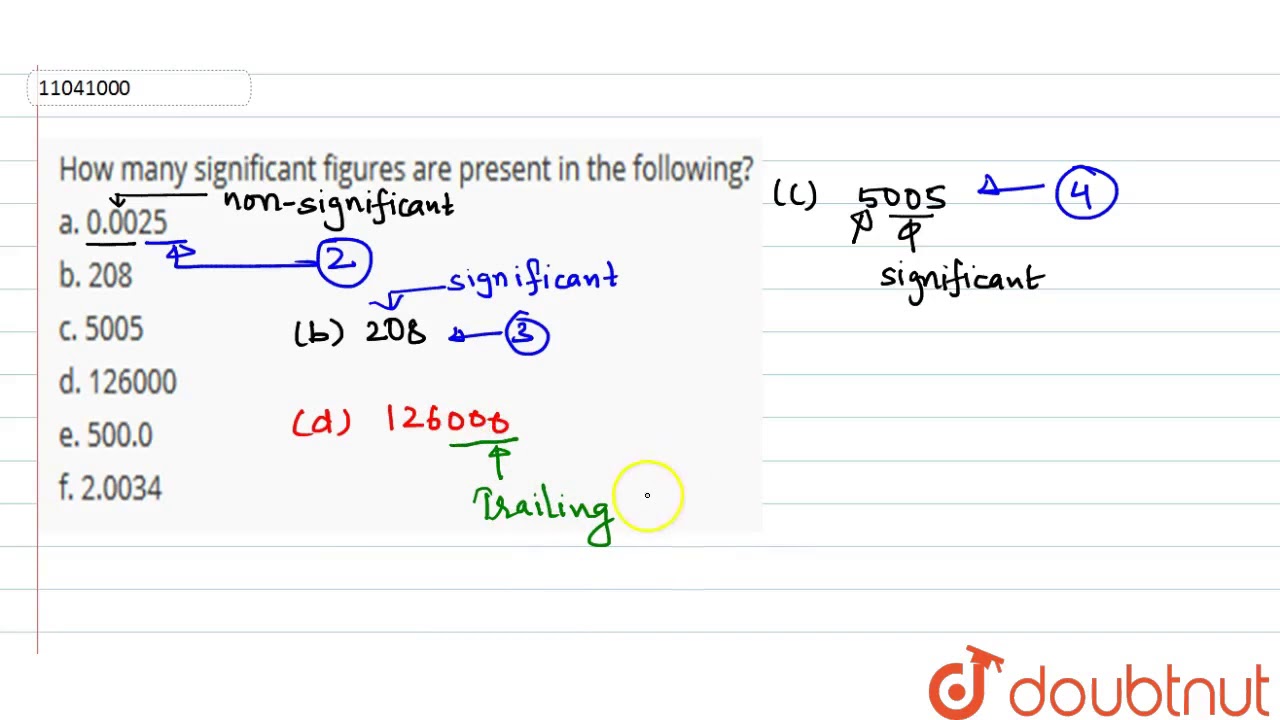 11041000
How many significant figures are present in the following?
non-significant
a. 0.0025
2
b. 208
significant
(b) 208
3
c. 5005
d. 126000
(d) 126000
Trailing
e. 500.0
f. 2.0034
(c) 5005
4
significant
doubtnut